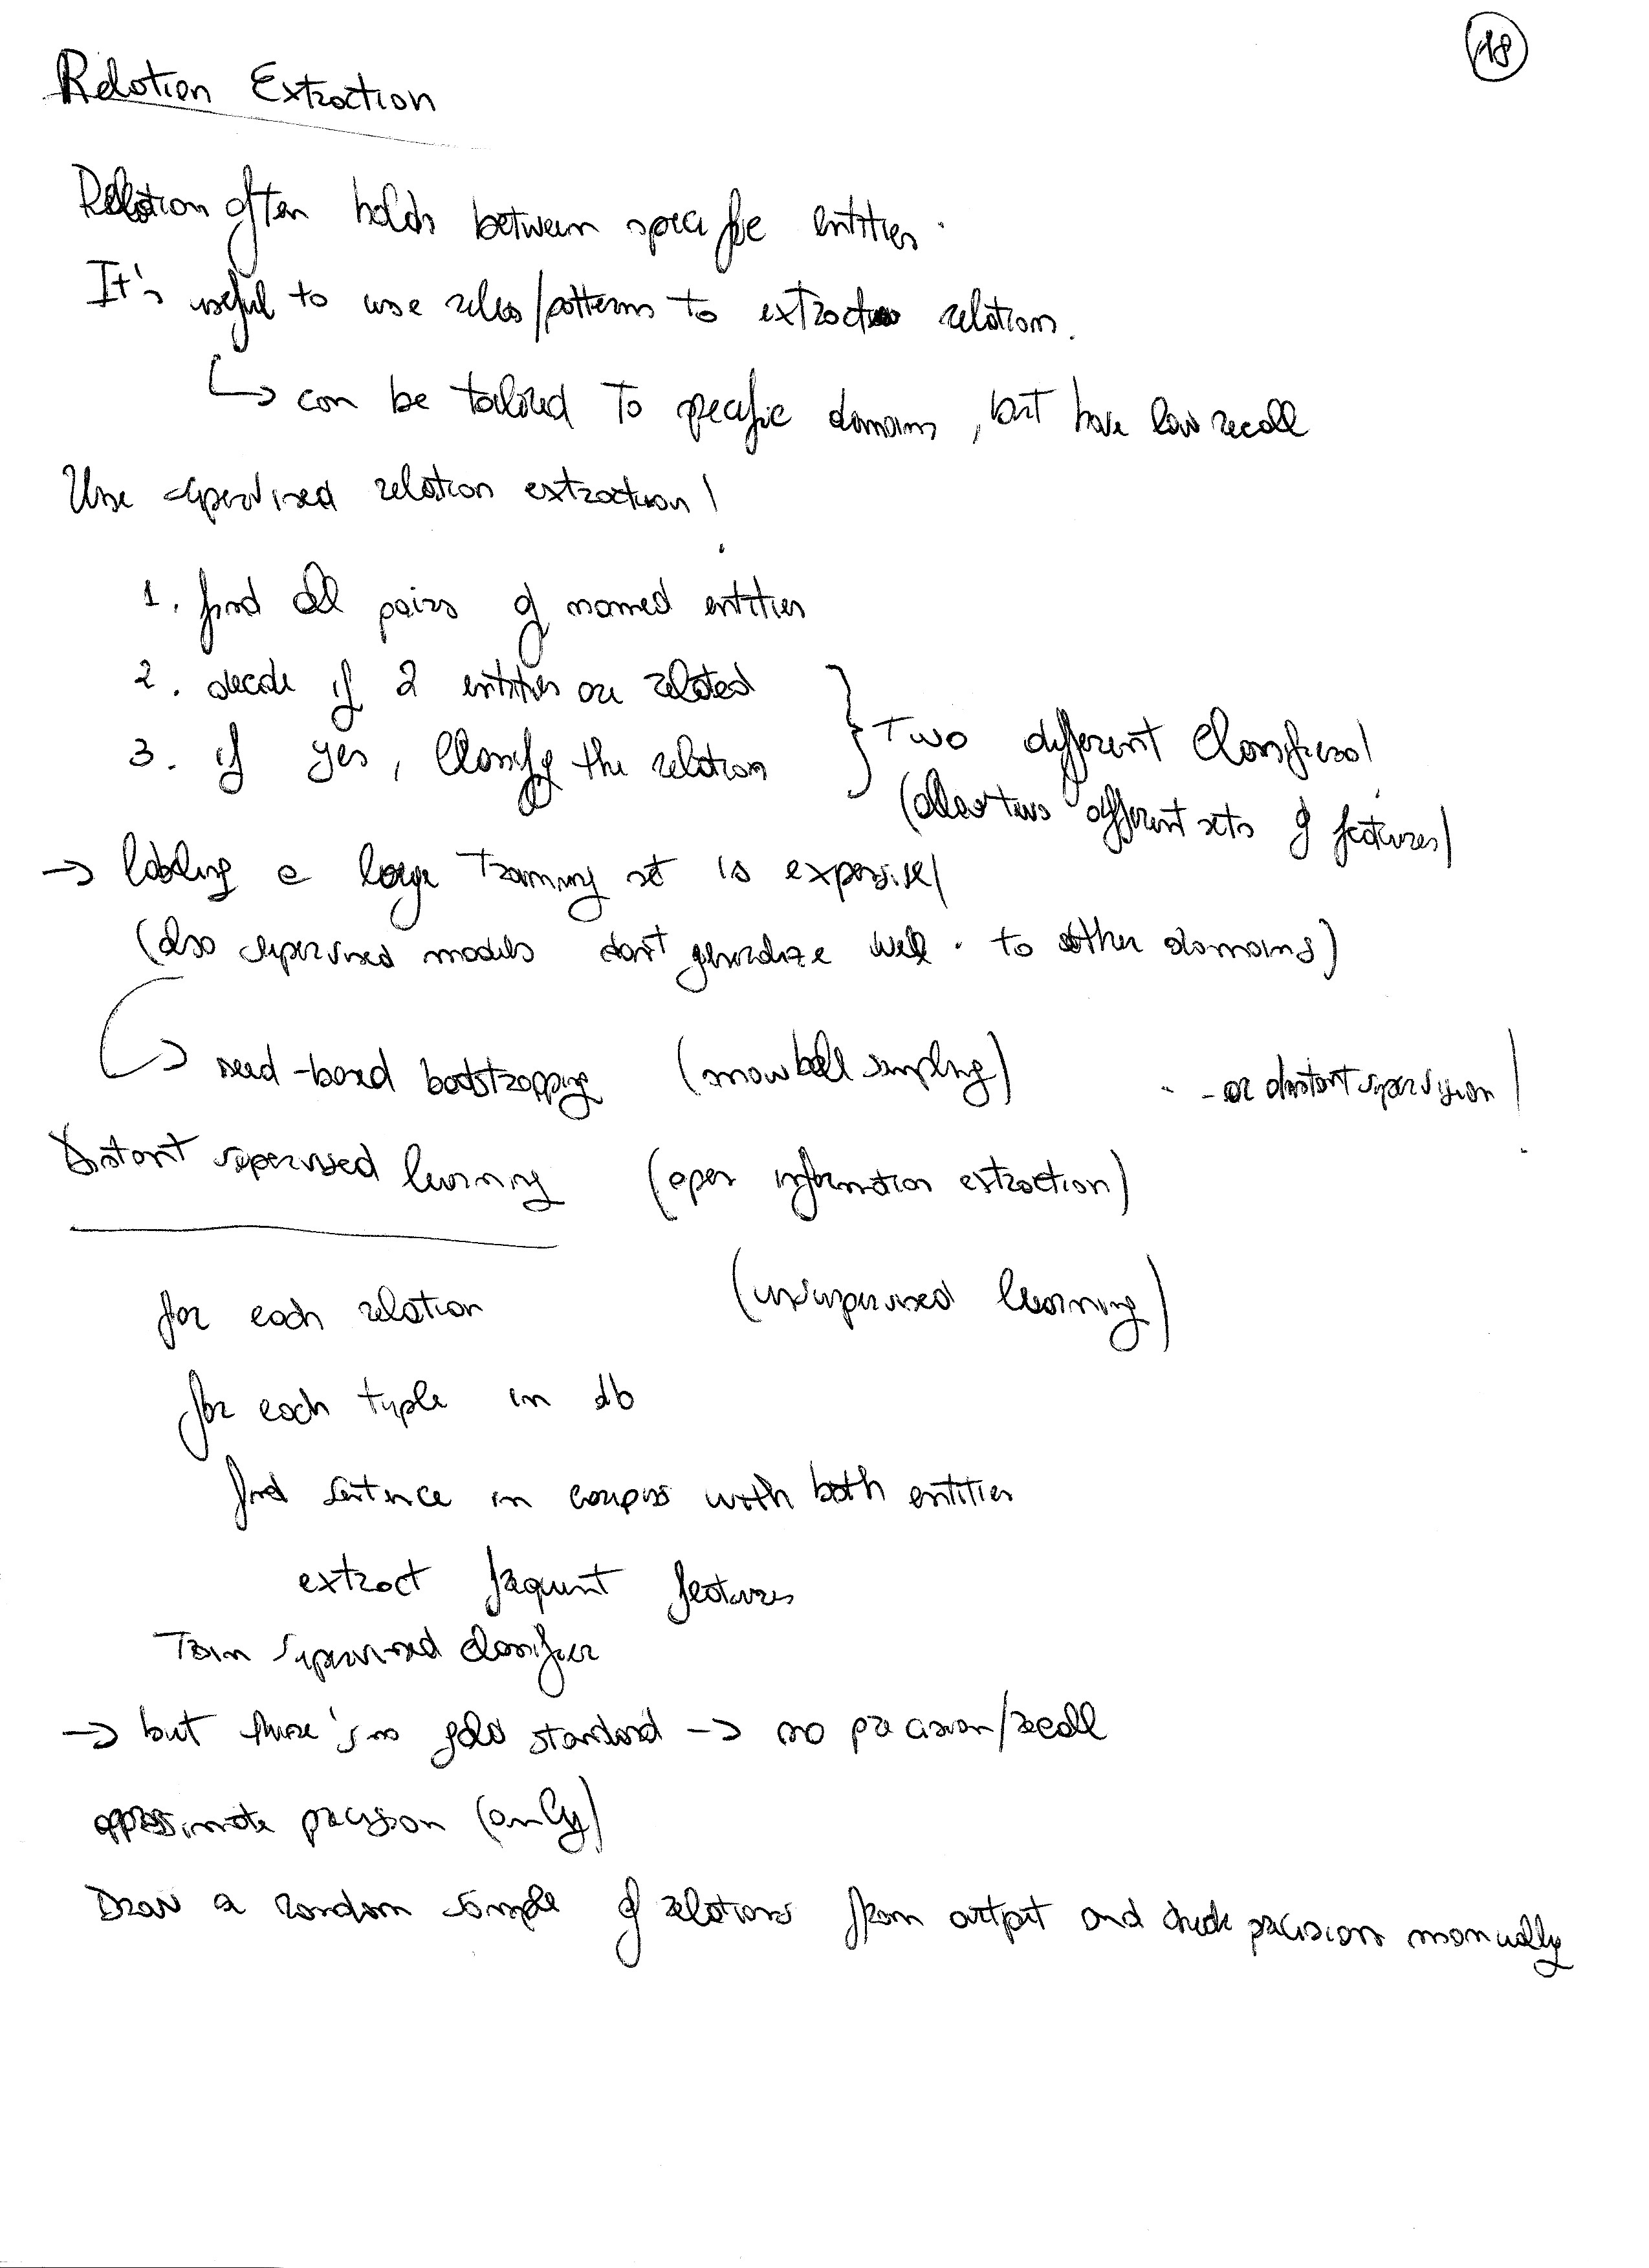 18
Relation Extraction
Relation often holds between specific entities.
It's useful to use rules/patterns to extract relations.
↳ can be tailored to specific domains, but have low recall
Use supervised relation extraction!
1. find all pairs of named entities
2. decide if 2 entities are related
3. if yes, classify the relation
} Two different classifiers!
(allow two different sets of features)
→ labeling a large training set is expensive!
(also supervised models don't generalize well to other domains)
↳ seed-based bootstrapping (snowball sampling) ... or distant supervision!
Distant supervised learning (open information extraction)
(unsupervised learning)
for each relation
for each tuple in db
find sentence in corpus with both entities
extract frequent features
Train supervised classifier
→ but there's no gold standard → no precision/recall
approximate precision (only)
Draw a random sample of relations from output and check precision manually